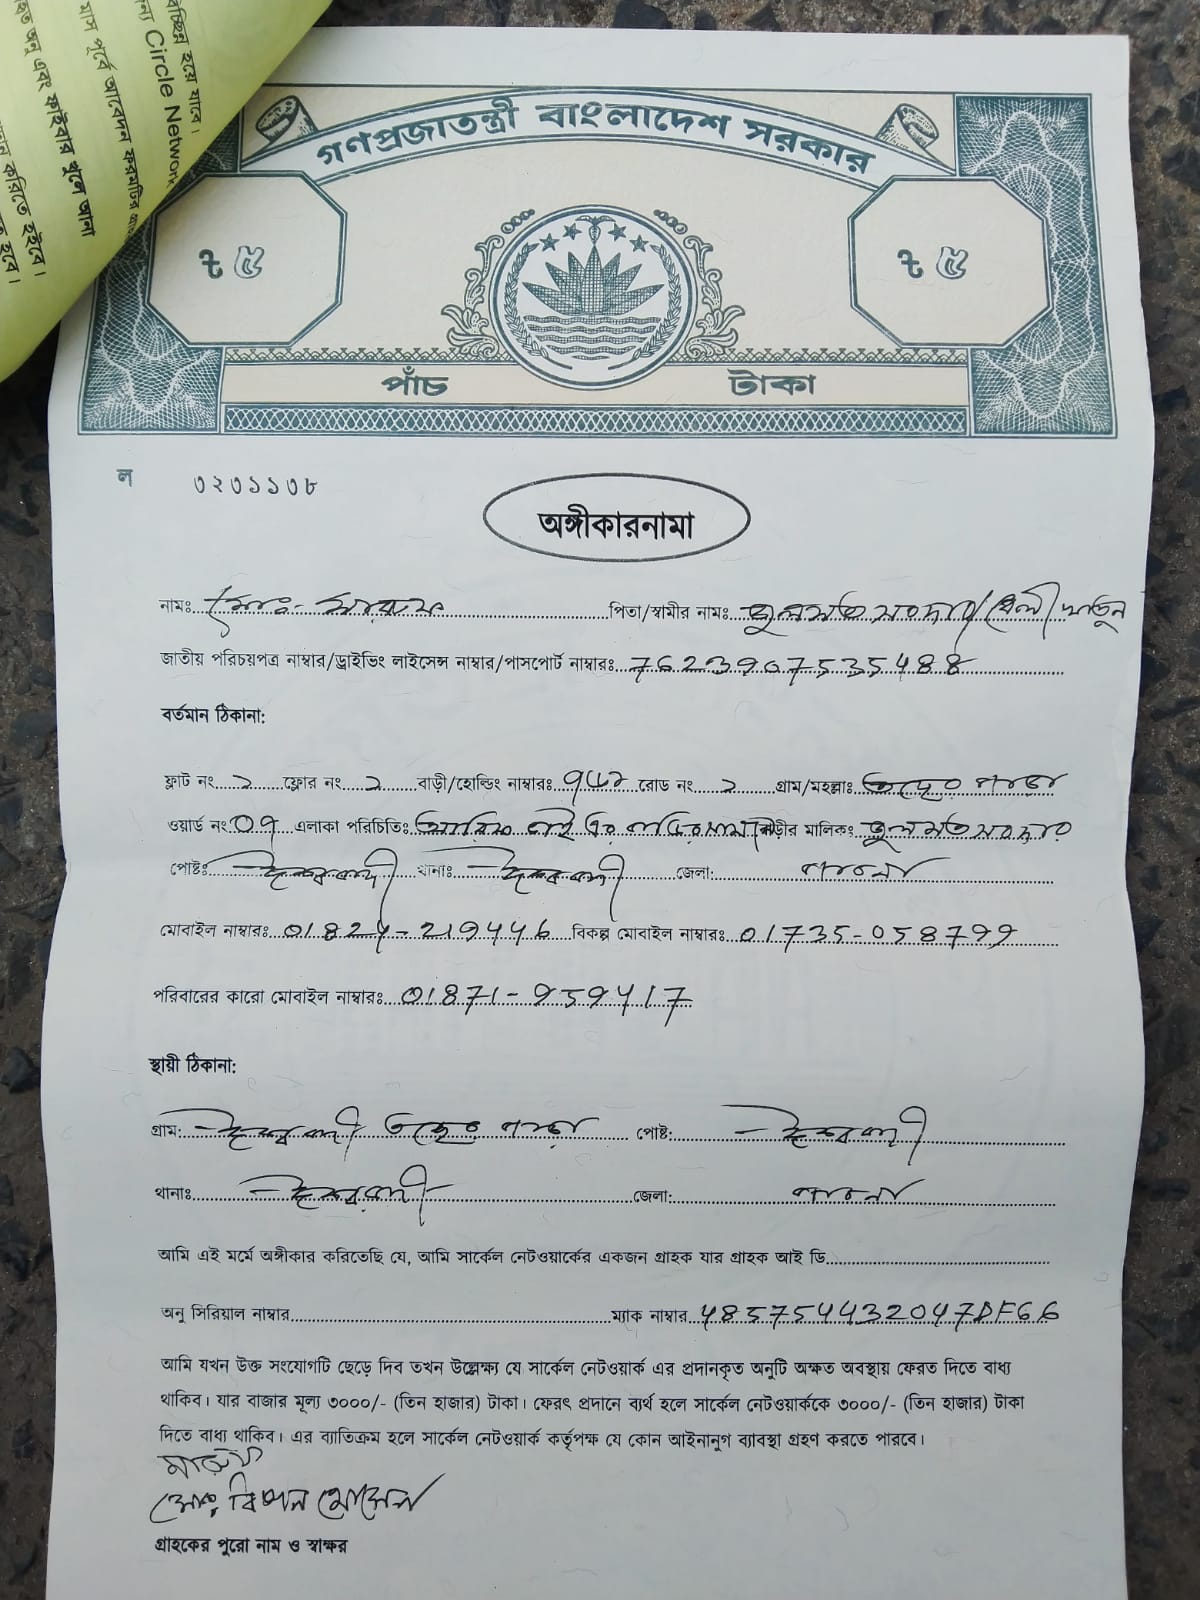 বচ্ছিন্ন হয়ে যাবে।
Circle Network
মাস পূর্বে আবেদন করমটির
এবং ফাইবার খুলে আনা
করিতে হইবে।
হবে।
গণপ্রজাতন্ত্রী বাংলাদেশ সরকার
৳ ৫ ৳ ৫
পাঁচ টাকা
ল ৩২৩১১৩৮
অঙ্গীকারনামা
নামঃ মোঃ- মারুফ পিতা/স্বামীর নামঃ সরদার/ খাতুন
জাতীয় পরিচয়পত্র নাম্বার/ড্রাইভিং লাইসেন্স নাম্বার/পাসপোর্ট নাম্বারঃ 7623907535488
বর্তমান ঠিকানা:
ফ্লাট নং ১ ফ্লোর নং ১ বাড়ী/হোল্ডিং নাম্বারঃ রোড নং ১ গ্রাম/মহল্লাঃ পাড়া
ওয়ার্ড নং 0৭ এলাকা পরিচিতিঃ আরিফ ভাই এর বাড়ির পাশে বাড়ীর মালিকঃ সরদার
পোষ্টঃ ঈশ্বরদী থানাঃ ঈশ্বরদী জেলা: পাবনা
মোবাইল নাম্বারঃ 01824-219446 বিকল্প মোবাইল নাম্বারঃ 01735-058799
পরিবারের কারো মোবাইল নাম্বারঃ 01871-959417
স্থায়ী ঠিকানা:
গ্রাম: ঈশ্বরদী পাড়া পোষ্ট: ঈশ্বরদী
থানাঃ ঈশ্বরদী জেলা: পাবনা
আমি এই মর্মে অঙ্গীকার করিতেছি যে, আমি সার্কেল নেটওয়ার্কের একজন গ্রাহক যার গ্রাহক আই ডি
অনু সিরিয়াল নাম্বার ম্যাক নাম্বার 4857544432047DF66
আমি যখন উক্ত সংযোগটি ছেড়ে দিব তখন উল্লেক্ষ্য যে সার্কেল নেটওয়ার্ক এর প্রদানকৃত অনুটি অক্ষত অবস্থায় ফেরত দিতে বাধ্য
থাকিব। যার বাজার মূল্য ৩০০০/- (তিন হাজার) টাকা। ফেরৎ প্রদানে ব্যর্থ হলে সার্কেল নেটওয়ার্ককে ৩০০০/- (তিন হাজার) টাকা
দিতে বাধ্য থাকিব। এর ব্যতিক্রম হলে সার্কেল নেটওয়ার্ক কর্তৃপক্ষ যে কোন আইনানুগ ব্যাবস্থা গ্রহণ করতে পারবে।
মারুফ
মোঃ হোসেন
গ্রাহকের পুরো নাম ও স্বাক্ষর